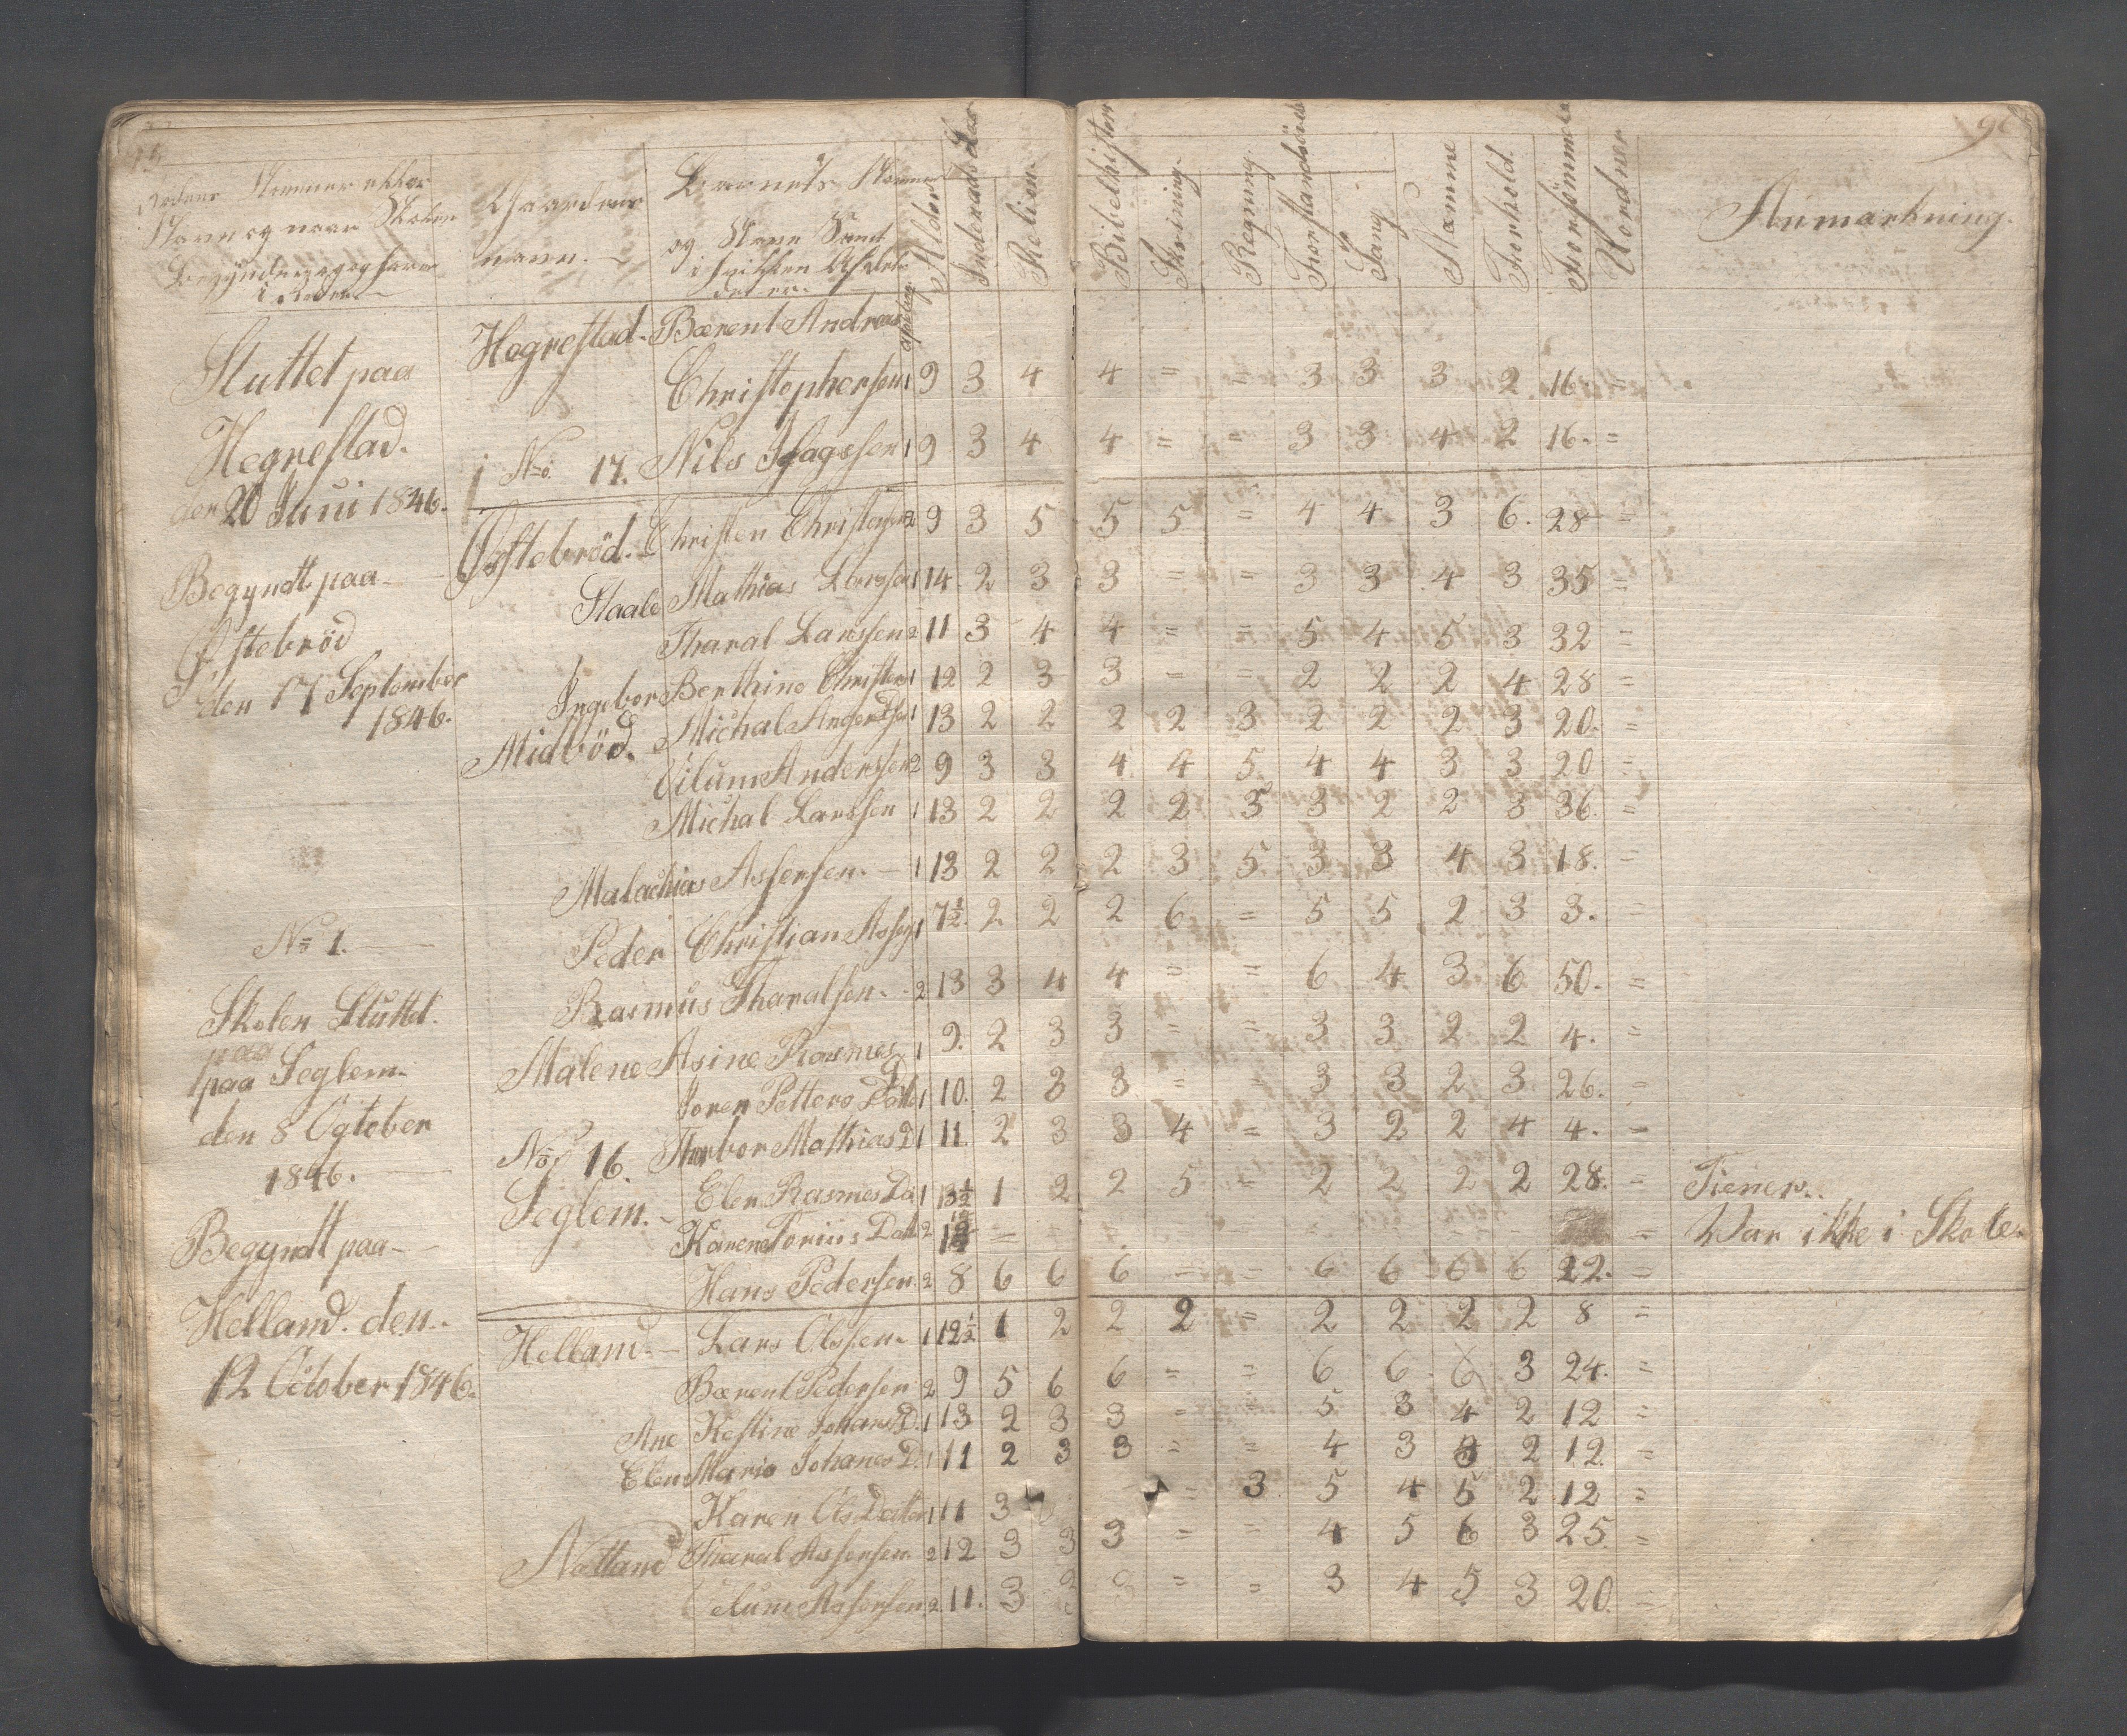 Rodens Nummer etter
Navn og naar Skolen
Begynder og ophører
i Roden.
Gaardens
Navn.
Barnets Navn
og Stave Samt
i hvilken Afdeling
det er.
Afdeling.
Alder
Inderads Læs
Relion.
Bibelhistori
Skrivning.
Regning.
Forstandsövelse
Sang
Næmme
Forhold.
Forsömmelse
Uordner
Anmærkning.
Sluttet paa
Hegrestad.
den 20 Juni 1846.
Begyndt paa
Östebröd
den 17 September
1846.
No 1.
Skolen Sluttet.
paa Seglem.
den 8 Ogtober
1846.
Begyndt paa
Helland. den
12 October 1846.
Hegrestad. Bærent Andreas
Christophersen 1 9 3 4 4 = = 3 3 3 2 16 =
No. 17. Nils Isagssen 1 9 3 4 4 = = 3 3 4 2 16. =
Östebröd. Christen Christensen 2 9 3 5 5 5 = 4 4 3 6. 28 =
Staale Mathias Larssen 1 14. 2 3 3 = = 3 3 4 3 35 =
Tharal Larssen 2 11 3 4 4 = = 5 4 5 3 32 =
Ingebor Berthine Christens 1 12 2 3 3 = = 2 2 2 4 28 =
Midbröd. Michal Anderssen 1 13 2 2 2 2 3 2 2 2 3 20. =
Vilum Anderssen 2 9 3 3 4 4 5 4 4 3 3 20 =
Michal Larssen 1 13 2 2 2 2 3 3 2 2 3 36. =
Malachias Assersen. 1 13 2 2 2 3 5 3 3 4 3 18. =
Peder Christian Assers 1 7½. 2 2 2 6 = 5 5 2 3 3. =
Rasmus Tharalsen. 2 13 3 4 4 = = 6 4 3 6 50. =
Malene Asine Rasmes 1 9. 2 3 3 = = 3 3 2 2 4. =
Joren Petters Datte 1 10. 2 3 3 = = 3 3 2 3 26. =
No 16. Thorbor Mathias D 1 11. 2 3 3 4 = 3 2 2 4 4. =
Seglem. Elen Rasmes Da 1 13½ 1 2 2 5 = 2 2 2 2 28. = Tiener.
Karene Torius Datt 2 = Var ikke i Skole.
Hans Pedersen. 2 8 6 6 6 = = 6 6 6 6 22. =
Helland. Lars Olssen. 1 12½ 1 2 2 2 = 2 2 2 2 8 =
Bærent Pedersen 2 9 5 6 6 = = 6 6 6 3 24. =
Ane Kestine Johanes D. 1 13 2 3 3 = = 5 3 4 2 12 =
Elen Maria Johanes D. 1 11 2 3 3 = = 4 3 3 2 12. =
Karen Ols Datter 1 11 3 = 3 5 4 5 2 12 =
Netland Tharal Assersen. 2 12 3 3 3 = = 4 5 6 3 25. =
Velum Assersen 2 11. 3 3 3 = = 3 4 5 3 20. =